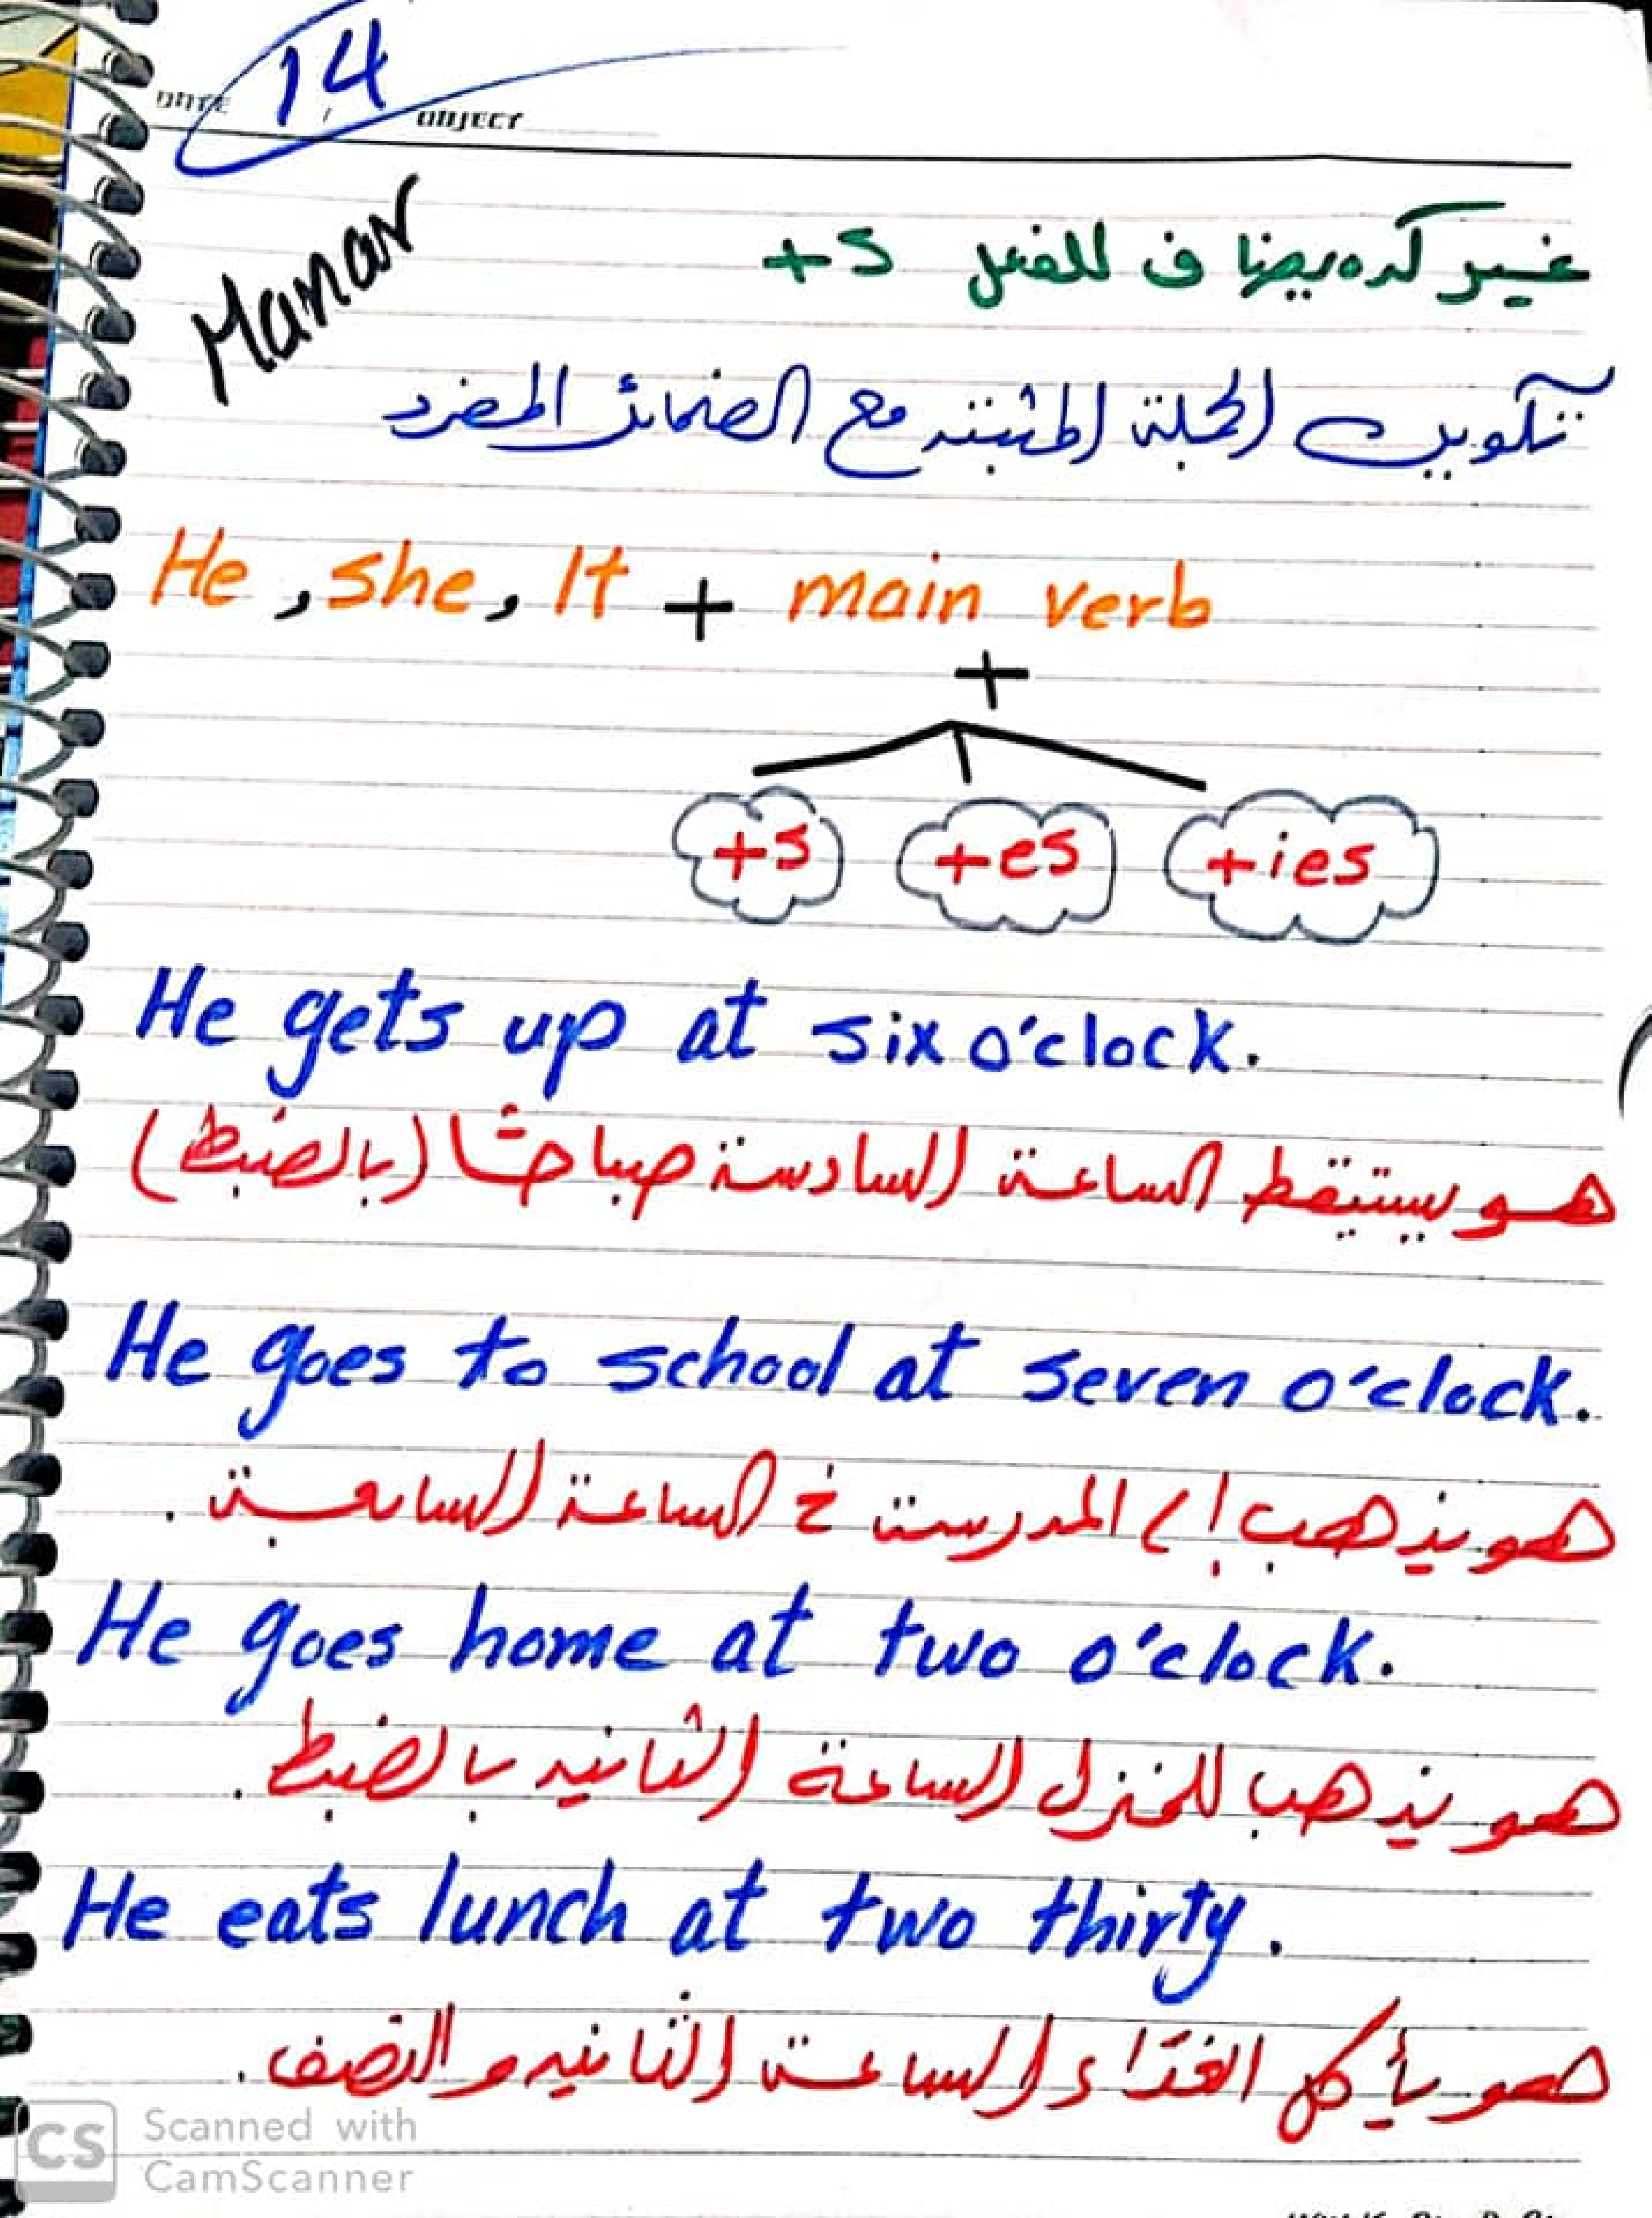 14
DATE OBJECT
Manar
غير كده يضاف للفعل +s
تكوين الجملة المثبته مع الضمائر المفرد
He, she, It + main verb
+
+s +es +ies
He gets up at six o'clock.
هو يستيقظ الساعة السادسة صباحًا (بالضبط)
He goes to school at seven o'clock.
هو يذهب إلى المدرسة في الساعة السابعة.
He goes home at two o'clock.
هو يذهب للمنزل الساعة الثانيه بالضبط.
He eats lunch at two thirty.
هو يأكل الغداء الساعة الثانيه والنصف.
CS Scanned with
CamScanner